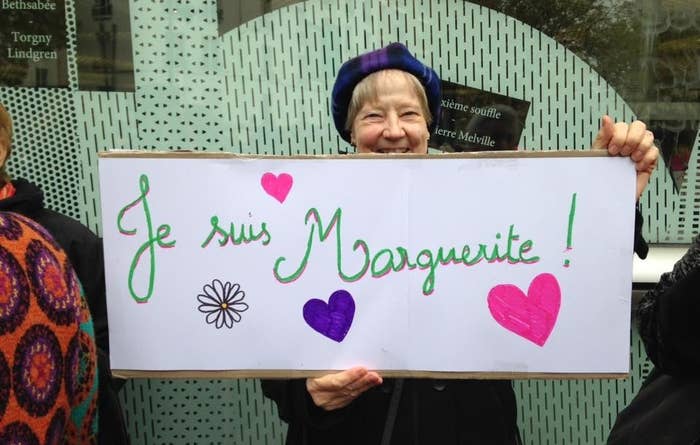 Bethsabée
Torgny
Lindgren
xième souffle
ierre Melville
Je suis Marguerite !